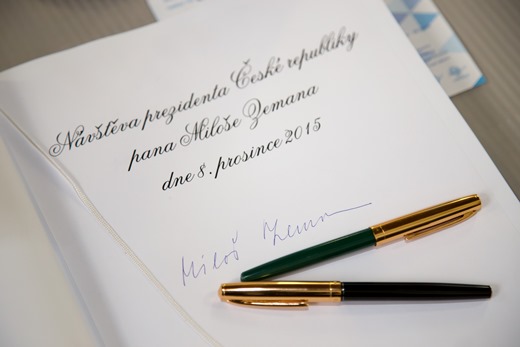 Návštěva prezidenta České republiky
pana Miloše Zemana
dne 8. prosince 2015
Miloš Zeman